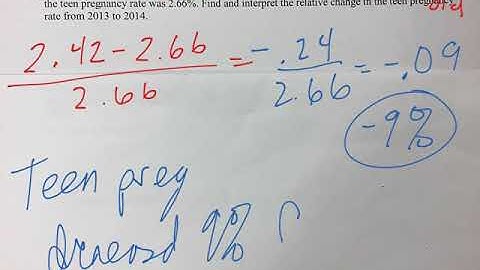 the teen pregnancy rate was 2.66%. Find and interpret the relative change in the teen pregnancy
rate from 2013 to 2014.
old
2.42-2.66 / 2.66 = -.24 / 2.66 = -.09
-9%
Teen preg
9%